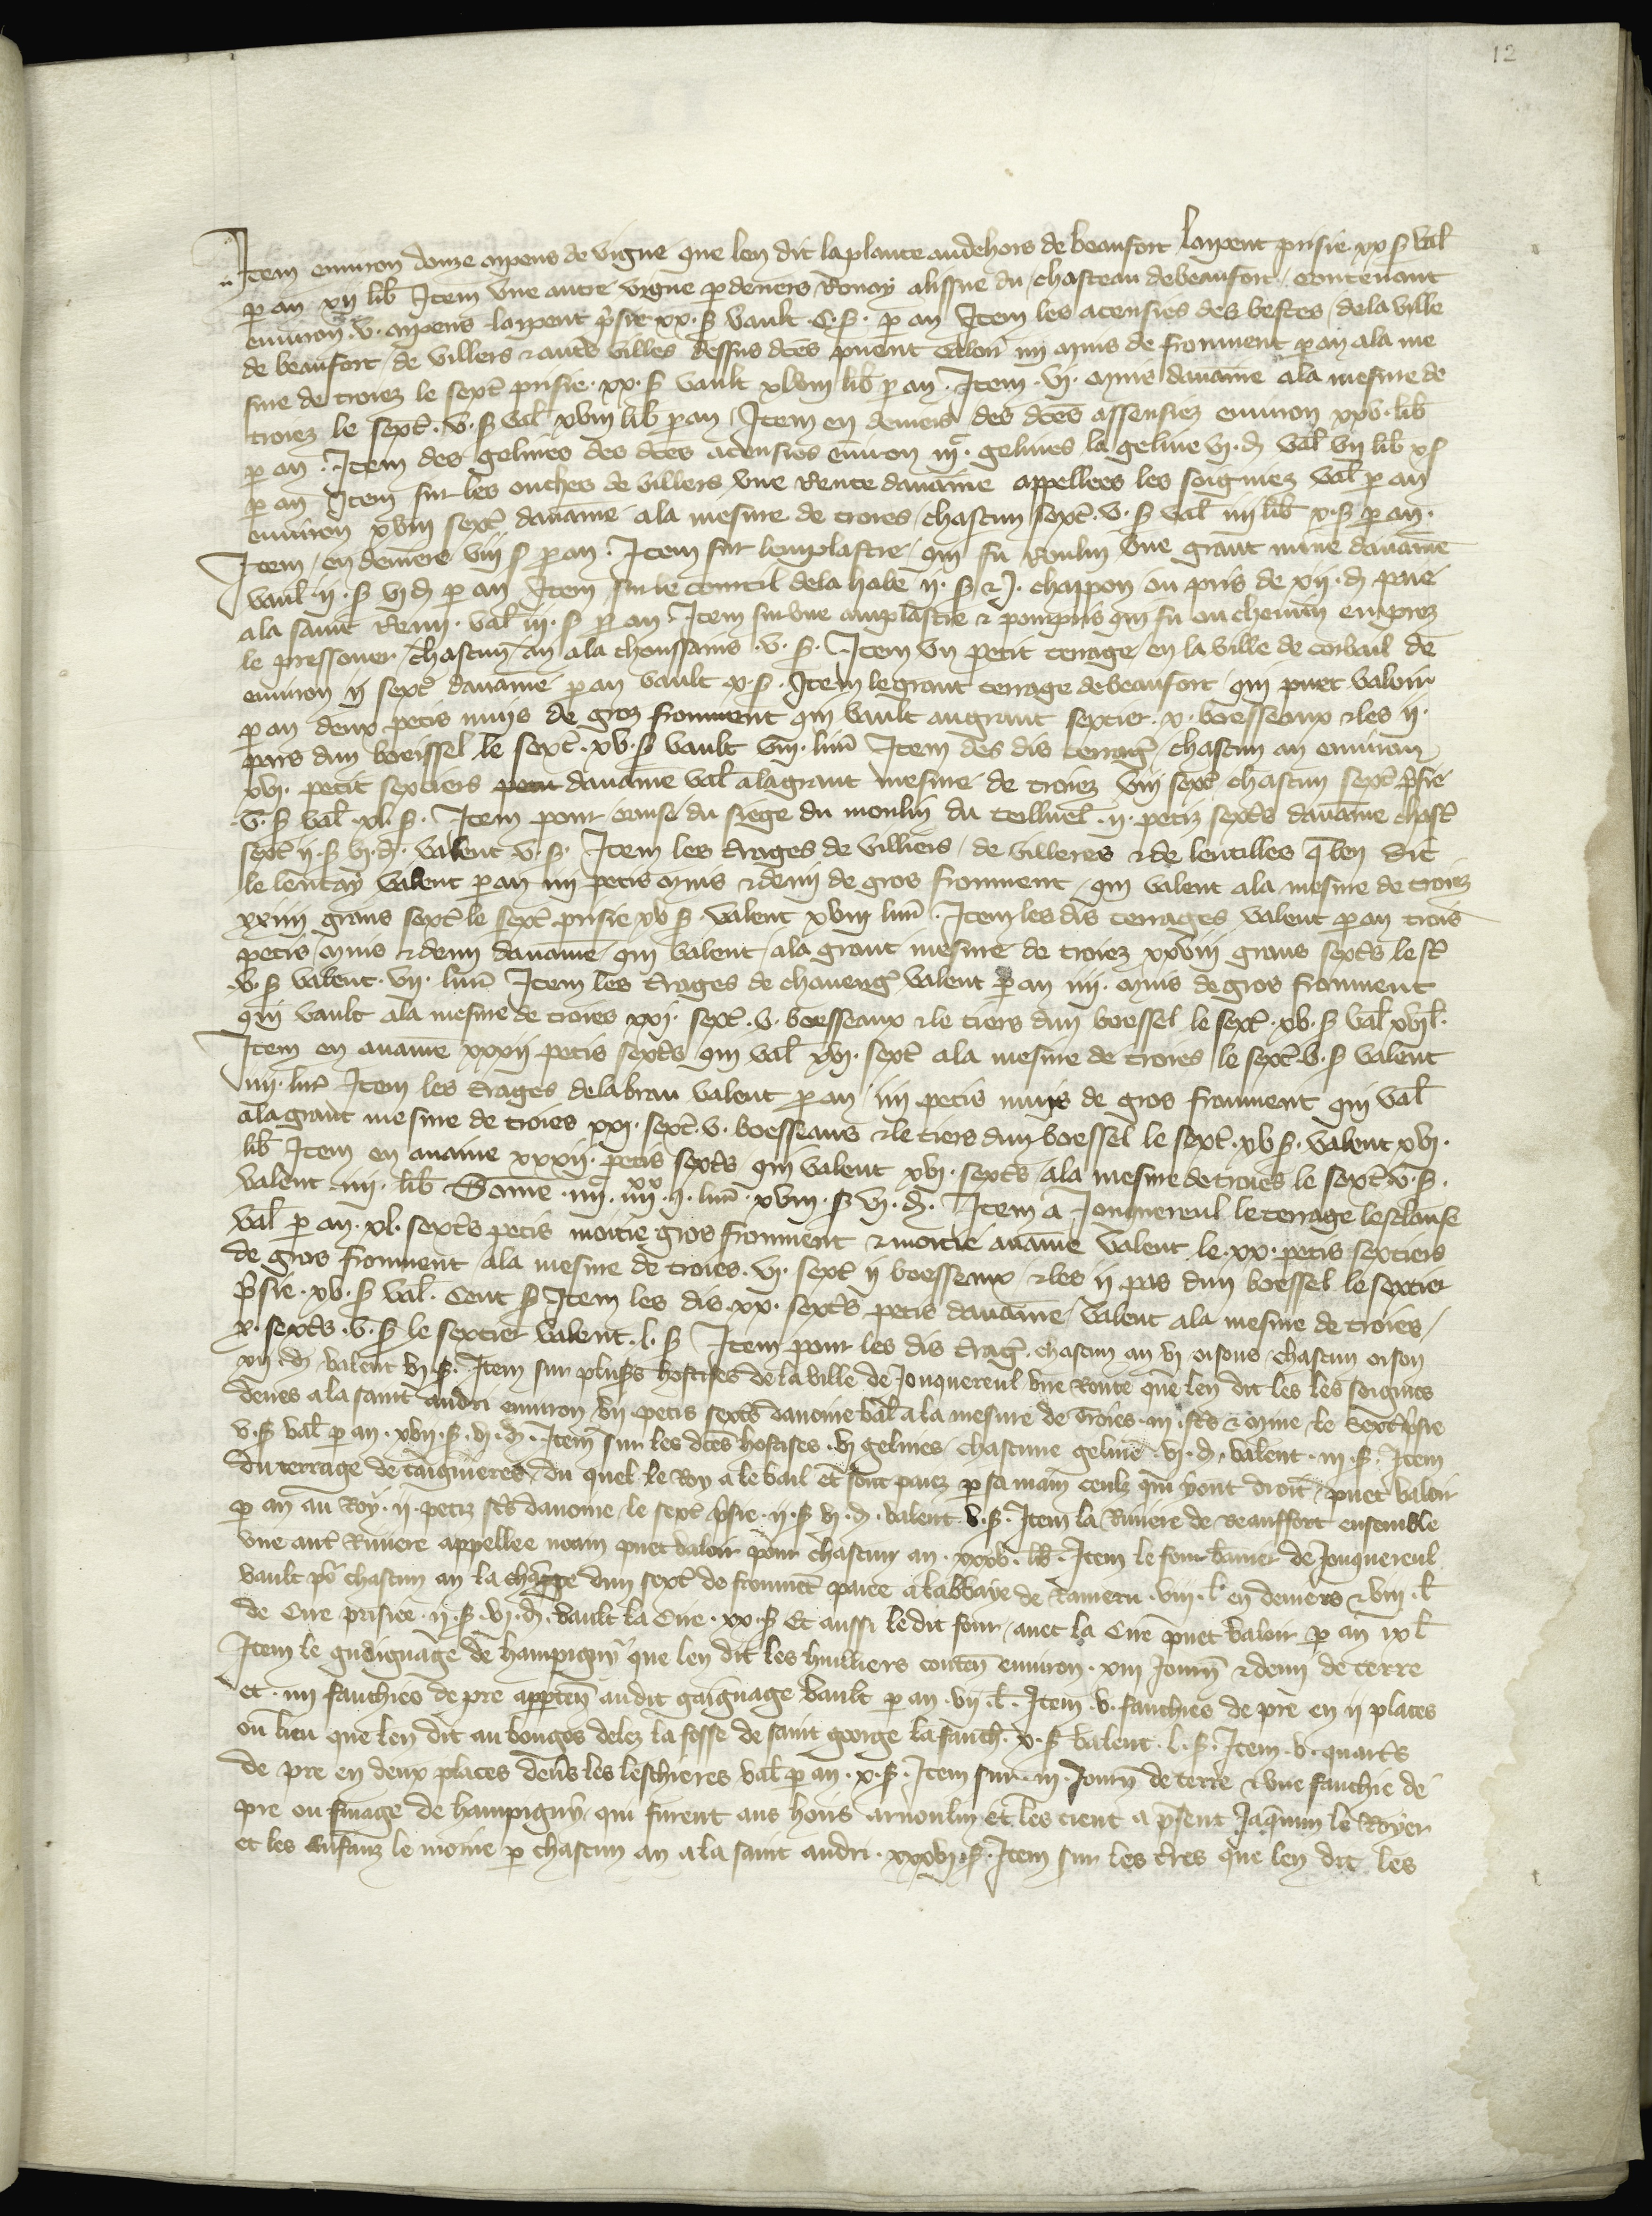 12
Item enuiron douze arpens de vigne que len dit laplante audehors de beaufort larpent prisie xx s val̄
ꝑ an xij lib̄ Item vne autre vigne ꝑ deuers Ronay alissue du chasteau debeaufort contenant
enuiron .v. arpens larpent p̄sie xx. s vault .C. s. ꝑ an Item les acensies des bestes dela ville
de beaufort de villers ⁊ aut̄s villes dessus dc̄es puent valoir iiij muis de froument ꝑ an ala me
sure de troiez le sext̄ prisie .xx. s vault xlviij lib̄ ꝑ an . Item .vj. muis dauaine ala mesure de
troiez le sext̄ .v. s val̄ xviij lib̄ ꝑ an Item en deniers des dc̄es assensies enuiron xxv. lib̄
ꝑ an . Item des gelines des dc̄es acensies enuiron iijᶜ. gelines la geline vj. d val̄ vij lib̄ x s
ꝑ an Item sur les ouches de villers vne Rente dauaine appellees les soigniez val̄ ꝑ an
enuiron xviij sext̄ dauaine ala mesure de troies chascun sext̄ .v. s val̄ iiij lib̄ x. s ꝑ an.
Item en deniers viij s ꝑ an . Item sur lemplastre qui fu Roulin vne grant mine dauaine
vault .ij. s vj d ꝑ an Item sur le courtil dela habe ij. s ⁊ j. chappon ou pris de xij. d paie
ala saint Remi . val̄ iij. s ꝑ an . Item sur vne amplastre ⁊ pourpris qui fu ou chemin emprez
le pressouer chascun an ala thoussains .v. s. Item vn petit terrage en la ville de corbail de
enuiron ij sext̄ dauaine ꝑ an vault x. s. Item legrant terrage debeaufort qui puet valoir
ꝑ an deux petis muis de groz froument qui vault augrant sextier .x. boesseaux ⁊les ij.
pars dun boeissel le sext̄ .xv. s vault viij. liur̄ Item des dis terraḡ chascun an enuiron
xvj. petit sextiers dauaine val̄ alagrant mesure de troiez viij sext̄ chascun sext̄ p̄sie
.v. s val̄ .xl. s. Item pour cause du siege du moulin du .ij. petiz sext̄s dauaine chasc̄
sext̄ ij. s vj. d. valent v. s. Item les t̄rages de villiers de villeres ⁊de lentilles q̄ len dit
le lentay valent ꝑ an iiij petis muis ⁊demi de gros froument qui valent ala mesure de troiez
xxiiij grans sext̄ le sext̄ prisie xv s valent xviij liur̄ . Item les dis terrages valent ꝑ an trois
petis muis ⁊demi dauaine qui valent ala grant mesure de troiez xxviij grans sext̄s le st̄
.v. s valent .vij. liur̄ Item les t̄rages de chauenḡ valent ꝑ an iiij. muis degros froument
qui vault ala mesure de troies xxj. sext̄ .v. boesseaux ⁊le tiers dun boessel le sext̄ .xv. s val̄ xvj l̄.
Item en auaine xxxij petis sext̄s qui val̄ xvj. sext̄ ala mesure de troies le sext̄ .v. s valent
iiij. liur̄ Item les t̄rages delabrau valent ꝑ an iiij petis muis de gros froument qui val̄
alagrant mesure de troies xxj. sext̄ .v. boesseaus ⁊le tiers dun boessel le sext̄ .xv s. valent xvj.
lib̄ Item en auaine xxxij. petis sext̄s qui valent xvj. sext̄s ala mesure de troies le sext̄ .v. s.
valent .iiij. lib̄ Som̄e .iiijᶜ. iiijˣˣ .ij. liur̄ . xviij. s vj. d. Item a Jonquereul le terrage lesclause
val̄ ꝑ an .xl. sext̄s petis moitie gros froument ⁊ moitie auaine valent le .xx. petis sextiers
de gros froument ala mesure de troies .vj. sext̄ ij boesseaux ⁊les ij pars dun boessel le sextier
p̄sie .xv. s val̄. Cent s Item les dis .xx. sext̄s petis dauaine valent ala mesure de troies
x. sext̄s .v. s le sextier valent .l. s Item pour les dis t̄raḡ chascun an vj oisons chascun oison
xij. d valent vj s. Item sur pluss̄s hostises dela ville de Jonquereul vne Rente que len dit les les soignies
deues ala saint andri enuiron vij petis sext̄s dauoine val̄ ala mesure de Troies .iij. st̄s ⁊ mine le Sext̄ p̄sie
v. s val̄ ꝑ an .xvij. s. vj. d. Item sur les dc̄es hostises .vj gelines chascune geline .vj. d. valent .iij. s. Item
du terrage de taignieres du quel le Roy a le bail et sont paiez ꝑ sa main ceulz qui y ont droit puet valoir
ꝑ an au Roy .ij. petiz st̄s dauoine le sext̄ p̄sie .ij. s vj. d. valent .v. s. Item la Riuiere de Beauffort ensemble
vne aut̄ Riuiere appellee noain puet valoir pour chascun an .xxxv. lb̄. Item le four banier de Jonquereul
vault po᷑ chascun an la charge dun sext̄ de fromēt paiee a labbaye de Rameru .viij. l̄ en deniers ⁊ viij. l̄
de Cire prisiee .ij. s. vj. d. vault la Cire .xx. s Et aussi le dit four auec la Cire puet valoir ꝑ an ix l̄
Item le gaaignage de hampigny que len dit les huilliers conten̄ enuiron .xiij Journ̄ ⁊ demi de terre
et .iiij fauchies de pre apparten̄ audit gaignage vault ꝑ an .vij. l̄. Item .v. fauchies de pre en ij places
ou lieu que len dit au bouges delez la fosse de saint george la fauch̄. x. s valent .l. s. Item .v. quart̄s
de pre en deux places deūs les leschieres val̄ ꝑ an .x. s. Item sur .iij. Journ̄ de terre ⁊ vne fauchie de
pre ou finage de hampigny qui furent aus hoirs arnoulin et les tient a p̄sent Jaquinin le Royer
et les Enfanz le moine ꝑ chascun an a la saint andri .xxxvj. s. Item sur les t̄res que len dit les